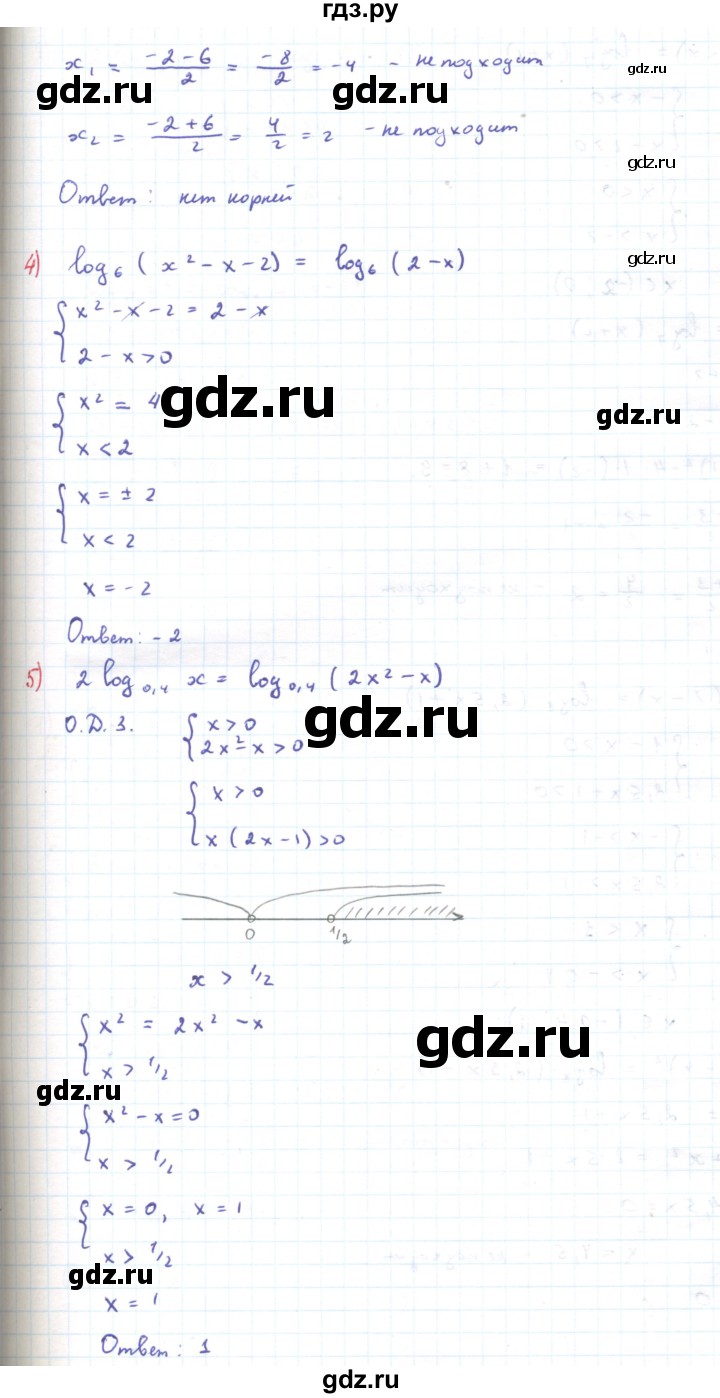 гдз.ру
x₁ = (-2-6)/2 = -8/2 = -4 - не подходит
gdz.ru
gdz.ru gdz.ru
x₂ = (-2+6)/2 = 4/2 = 2 - не подходит
Ответ: нет корней
4) log₆ (x² - x - 2) = log₆ (2 - x)
gdz.ru
{ x² - x - 2 = 2 - x
2 - x > 0
gdz.ru gdz.ru
{ x² = 4
x < 2
{ x = ± 2
x < 2
x = - 2
Ответ: - 2
5) 2 log₀,₄ x = log₀,₄ (2x² - x)
gdz.ru
О.Д.З. { x > 0
2x² - x > 0
{ x > 0
x (2x - 1) > 0
0 1/2
x > 1/2
{ x² = 2x² - x
x > 1/2
gdz.ru
gdz.ru
{ x² - x = 0
x > 1/2
{ x = 0, x = 1
x > 1/2
gdz.ru
x = 1
Ответ: 1
gdz.ru